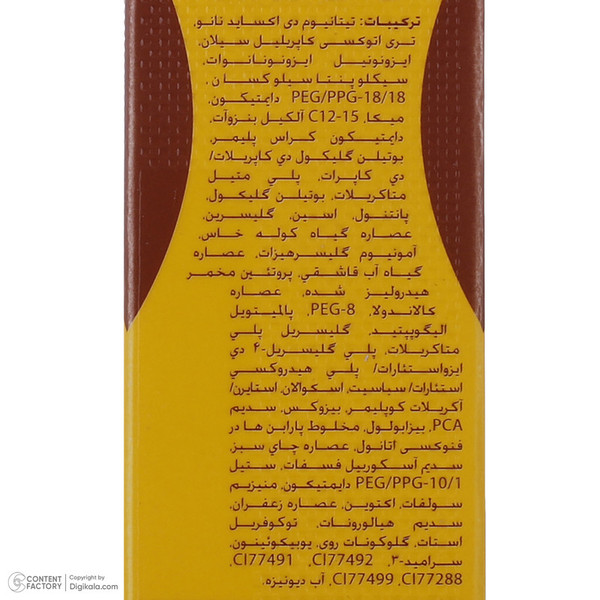 ترکیبات: تیتانیوم دی اکساید نانو،
تری اتوکسی کاپریلیل سیلان،
ایزونونیل ایزونونانوات،
سیکلو پنتا سیلو کسان،
PEG/PPG-18/18 دایمتیکون،
میکا، C12-15 آلکیل بنزوآت،
دایمتیکون کراس پلیمر،
بوتیلن گلیکول دی کاپریلات/
دی کاپرات، پلی متیل
متاکریلات، بوتیلن گلیکول،
پانتنول، اسین، گلیسرین،
عصاره گیاه کوله خاس،
آمونیوم گلیسرهیزات، عصاره
گیاه آب قاشقی، پروتئین مخمر
هیدرولیز شده، عصاره
کالاندولا، PEG-8، پالمیتویل
الیگوپپتید، گلیسریل پلی
متاکریلات، پلی گلیسریل-۴ دی
ایزواستئارات/ پلی هیدروکسی
استئارات/ سباسیت، اسکوآلان، استایرن/
آکریلات کوپلیمر، بیزوکس، سدیم
PCA، بیزابولول، مخلوط پارابن ها در
فنوکسی اتانول، عصاره چای سبز،
سدیم آسکوربیل فسفات، ستیل
PEG/PPG-10/1 دایمتیکون، منیزیم
سولفات، اکتوین، عصاره زعفران،
سدیم هیالورونات، توکوفریل
استات، گلوکونات روی، یوبیکوئینون،
سرامید-۳، CI77492، CI77491،
CI77288، CI77499، آب دیونیزه.
CONTENT FACTORY
Copyright by Digikala.com